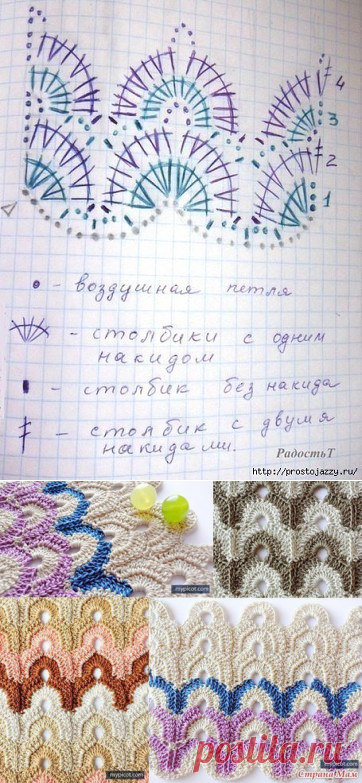 4
3
2
1
- воздушная петля
- столбики с одним
накидом
- столбик без накида
- столбик с двумя
накидами.
РадостьТ
http://prostojazzy.ru/
mypicot.com
mypicot.com
mypicot.com
mypicot.com
Страна Мам
postila.ru